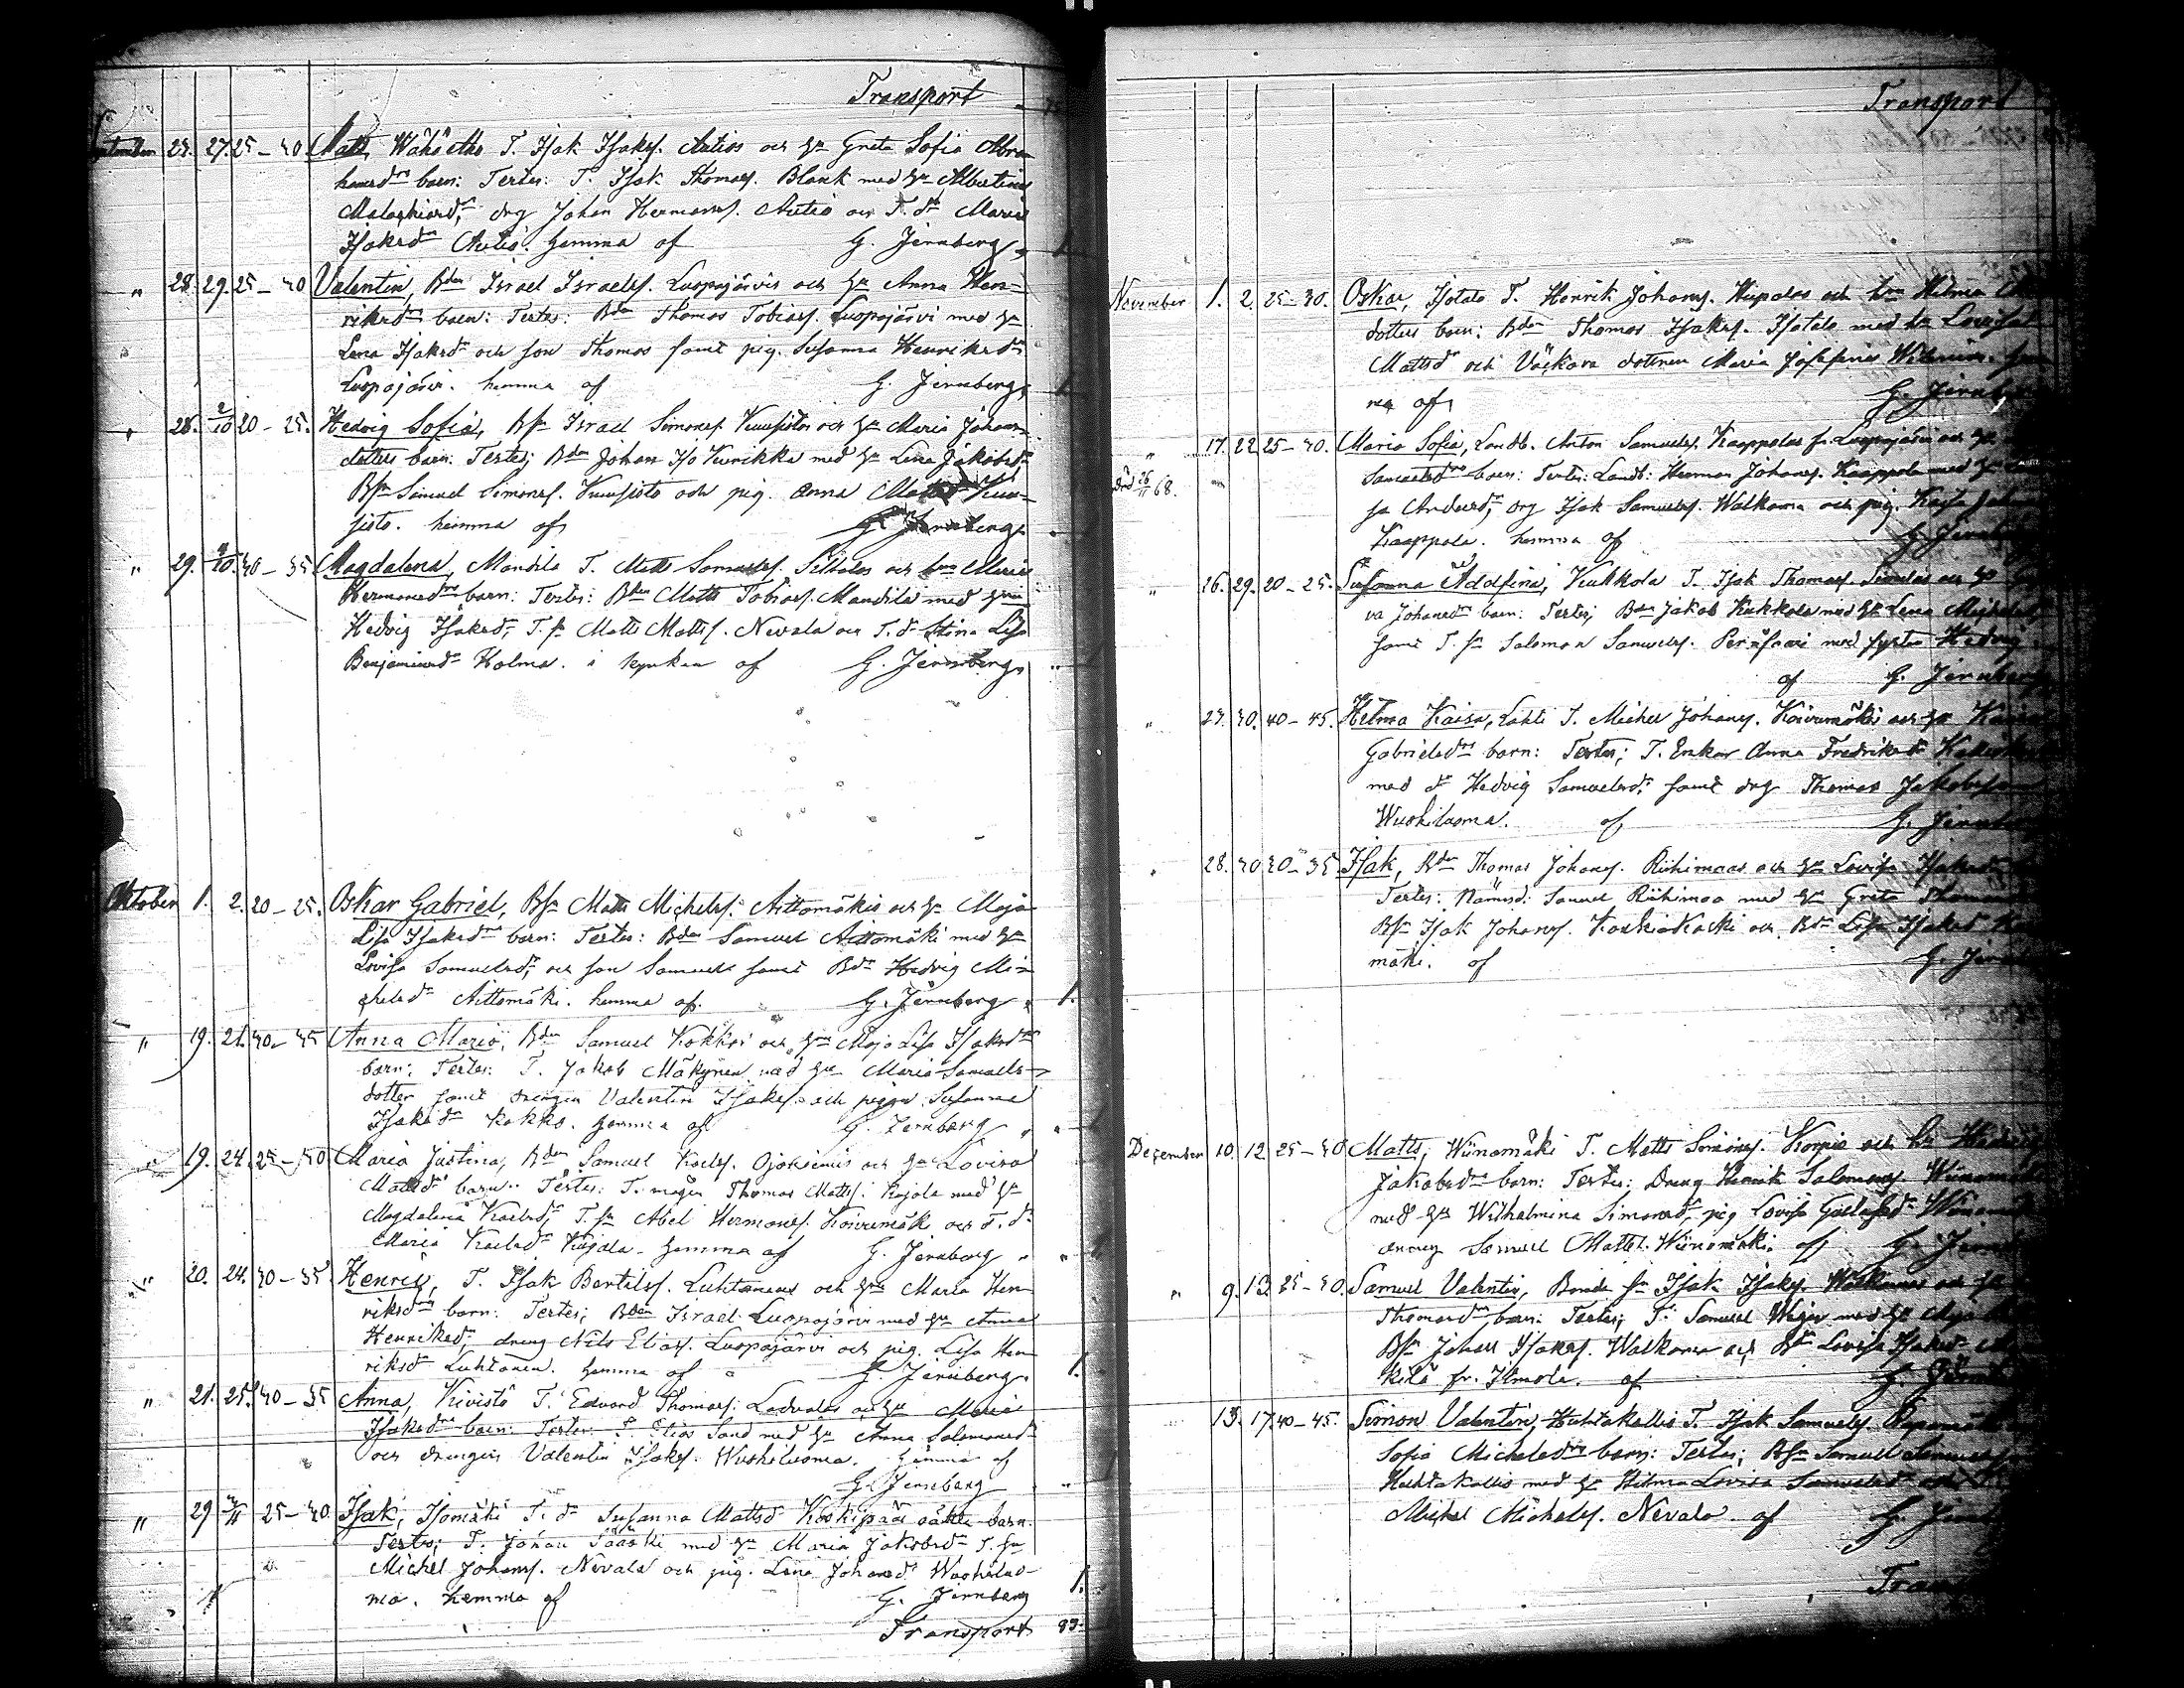 Transport
September 23. 27. 25-30 Matts, Wähä T. Isak Isaks. Autios och h. Greta Sofia Abra
hamsd. barn: Testes: T. Isak Thomas. Blank med h. Albertina
Malakiasd., drg Johan Hermans. Autio och T. d. Maria
Isaksd. Autio. hemma af G. Jernberg
" 28. 29. 25-30 Valentin, Bden Israel Israels. Luopajärvis och h. Anna Hen-
riksd. barn: Testes: Bden Thomas Tobias. Luopajärvi med h.
Lena Isaksd. och son Thomas samt pig. Susanna Henriksd.
Luopajärvi. hemma af G. Jernberg
" 28. 2/10 20-25. Hedvig Sofia, Bs. Israel Simons. Kuusistos och h. Maria Johans
dotters barn: Testes; Bden Johan Iso Kurikka med h. Lena Jakobsd.
Bs. Samuel Simons. Kuusisto och pig. Anna Kuu-
sisto. hemma af G. Jernberg
" 29. 4/10 30-35 Magdalena, Mandila T. Matts Samuels. och h. Maria
Hermansd. barn: Testes: Bden Matts Tobias. Mandila med h.
Hedvig Isaksd., T. s. Matts Matts. Nevala och T. d. Stina Lisa
Benjaminsd. Holma. i kyrkan af G. Jernberg
Oktober 1. 2. 20-25. Oskar Gabriel, Bs. Matts Michels. Aittomäkis och h. Maja
Lisa Isaksd. barn: Testes: Bden Samuel Aittomäki med h.
Lovisa Samuelsd., och son Samuel samt Bd. Hedvig Mi-
chelsd. Aittomäki. hemma af. G. Jernberg 1.
" 19. 21. 40-45 Anna Maria, Bden Samuel Kokkos och h. Maja Lisa Isaksd.
barn: Testes: T. Jakob Mäkynen med h. Maria Samuels-
dotter samt drengen Valentin Isaks. och pigan Susanna
Isaksd. Kokko. hemma af G. Jernberg
" 19. 24. 25-30 Maria Justina, Bden Samuel Karls. Ojaniemis och h. Lovisa
Mattsd. barn: Testes: T. mågen Thomas Matts. Kujala med h.
Magdalena Karlsd., T. s. Abel Hermans. Koivumäki och T. d.
Maria Karlsd. Kujala. hemma af G. Jernberg
" 20. 24. 30-35 Henrik, T. Isak Bertils. Luhtanens och h. Maria Hen
riksd. barn: Testes; Bden Israel Luopajärvi med h. Anna
Henriksd., dreng Nils Elias. Luopajärvi och pig. Lisa Hen
riksd. Luhtanen. hemma af G. Jernberg. 1.
" 21. 25. 30-35 Anna, Kivistö T. Edvard Thomas. Ladvalas och h. Maria
Isaksd. barn: Testes: T. Elias Sand med h. Anna Salomonsd.
och drengen Valentin Isaks. Wuohiluoma. hemma af
G. Jernberg
" 29 25-30. Isak, Isomäki T. d. Susanna Mattsd. Koskipää oäkta barn.
Testes; T. Johan Sääski med h. Maria Jakobsd. T. s.
Michel Johans. Nevala och pig. Lena Johansd. Wuohiluo-
ma. hemma af G. Jernberg 1.
Transport 83
Transport
November 1. 2. 25-30. Oskar, Isotalo T. Henrik Johans. och h. Hilma
dotters barn: Bden Thomas Isaks. Isotalo med h. Lovisa
Mattsd. och dottren Maria Josefina
ma af G. Jernberg
" 17. 22 25-30. Maria Sofia, Landb. Anton Samuels. Kaappolas fr. Luopajärvi och h.
död 26/11 68. barn: Testes: Landb: Herman Johans. Kaappola med h.
sa Andersd., drg Isak Samuels. Walkama och pig. Kajsa
Kaappola. hemma af G. Jernberg
" 16. 29. 20-25. Susanna Adolfina, Kukkola T. Isak Thomas. och h.
va Johansd. barn: Testes; Bden Jakob Kukkola med h. Lena Michelsd.
samt T. s. Salomon Samuels. Peräsaari med syster Hedvig
af G. Jernberg
" 23. 30. 40-45. Hilma Kaisa, Lahti T. Michel Johans. Koivumäkis och h. Kaisa
Gabrielsd. barn: Testes; T. Enkan Anna Fredriksd.
med d. Hedvig Samuelsd., samt drg Thomas Jakobsson
Wuohiluoma. af G. Jernberg
" 28. 30 30-35 Isak, Bden Thomas Johans. Riihimaas och h. Lovisa Isaksd.
Testes: Nämnd: Samuel Riihimaa med h. Greta
Bs. Isak Johans. och Bd. Lisa Isaksd.
mäki. af G. Jernberg
December 10. 12. 25-30 Matts, Wiinamäki T. Matts Simons. Korpis och h.
Jakobsd. barn: Testes; Dreng Henrik Salomons. Wiinamäki
med h. Wilhelmina Simonsd., pig Lovisa
dreng Samuel Matts. Wiinamäki. af G. Jernberg
" 9. 13. 25-30. Samuel Valentin, Bonde s. Isak Isaks. och h.
Thomasd. barn: Testes; T. Samuel med h. Maja
Bs. Johan Isaks. Walkama och Bd. Lovisa Isaksd.
kilä fr. Ilmola. af G. Jernberg
13. 17. 40-45. Simon Valentin, Huhtakallio T. Isak Samuels.
Sofia Michelsd. barn: Testes; Bs. Samuel
Huhtakallio med h. Hilma Lovisa Samuelsd. och
Michel Michels. Nevala. af G. Jernberg
Transport